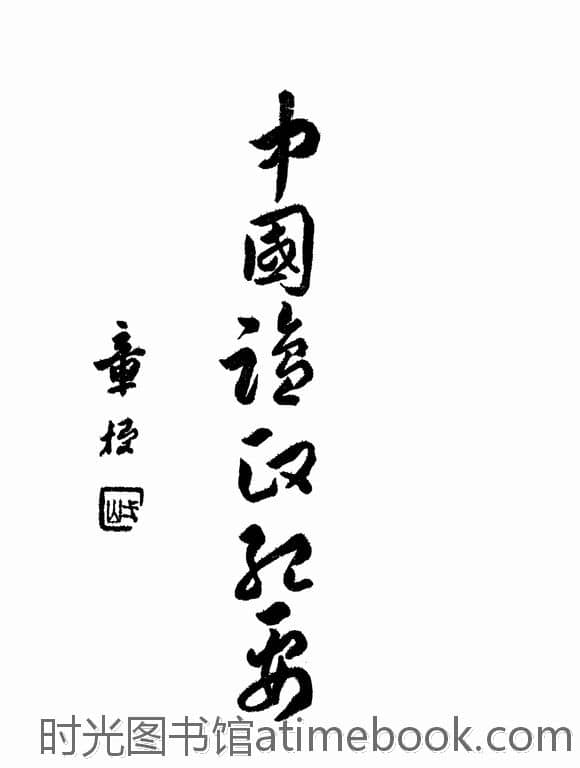 中國鹽政紀要
章梫
时光图书馆atimebook.com